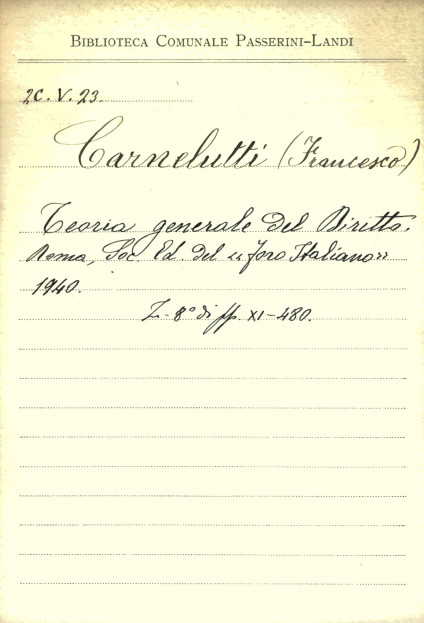 BIBLIOTECA COMUNALE PASSERINI-LANDI
2C. V. 23
Carnelutti (Francesco)
Teoria generale del Diritto.
Roma, Soc. Ed. del «Foro Italiano»
1940.
8° di pp. XI-480.